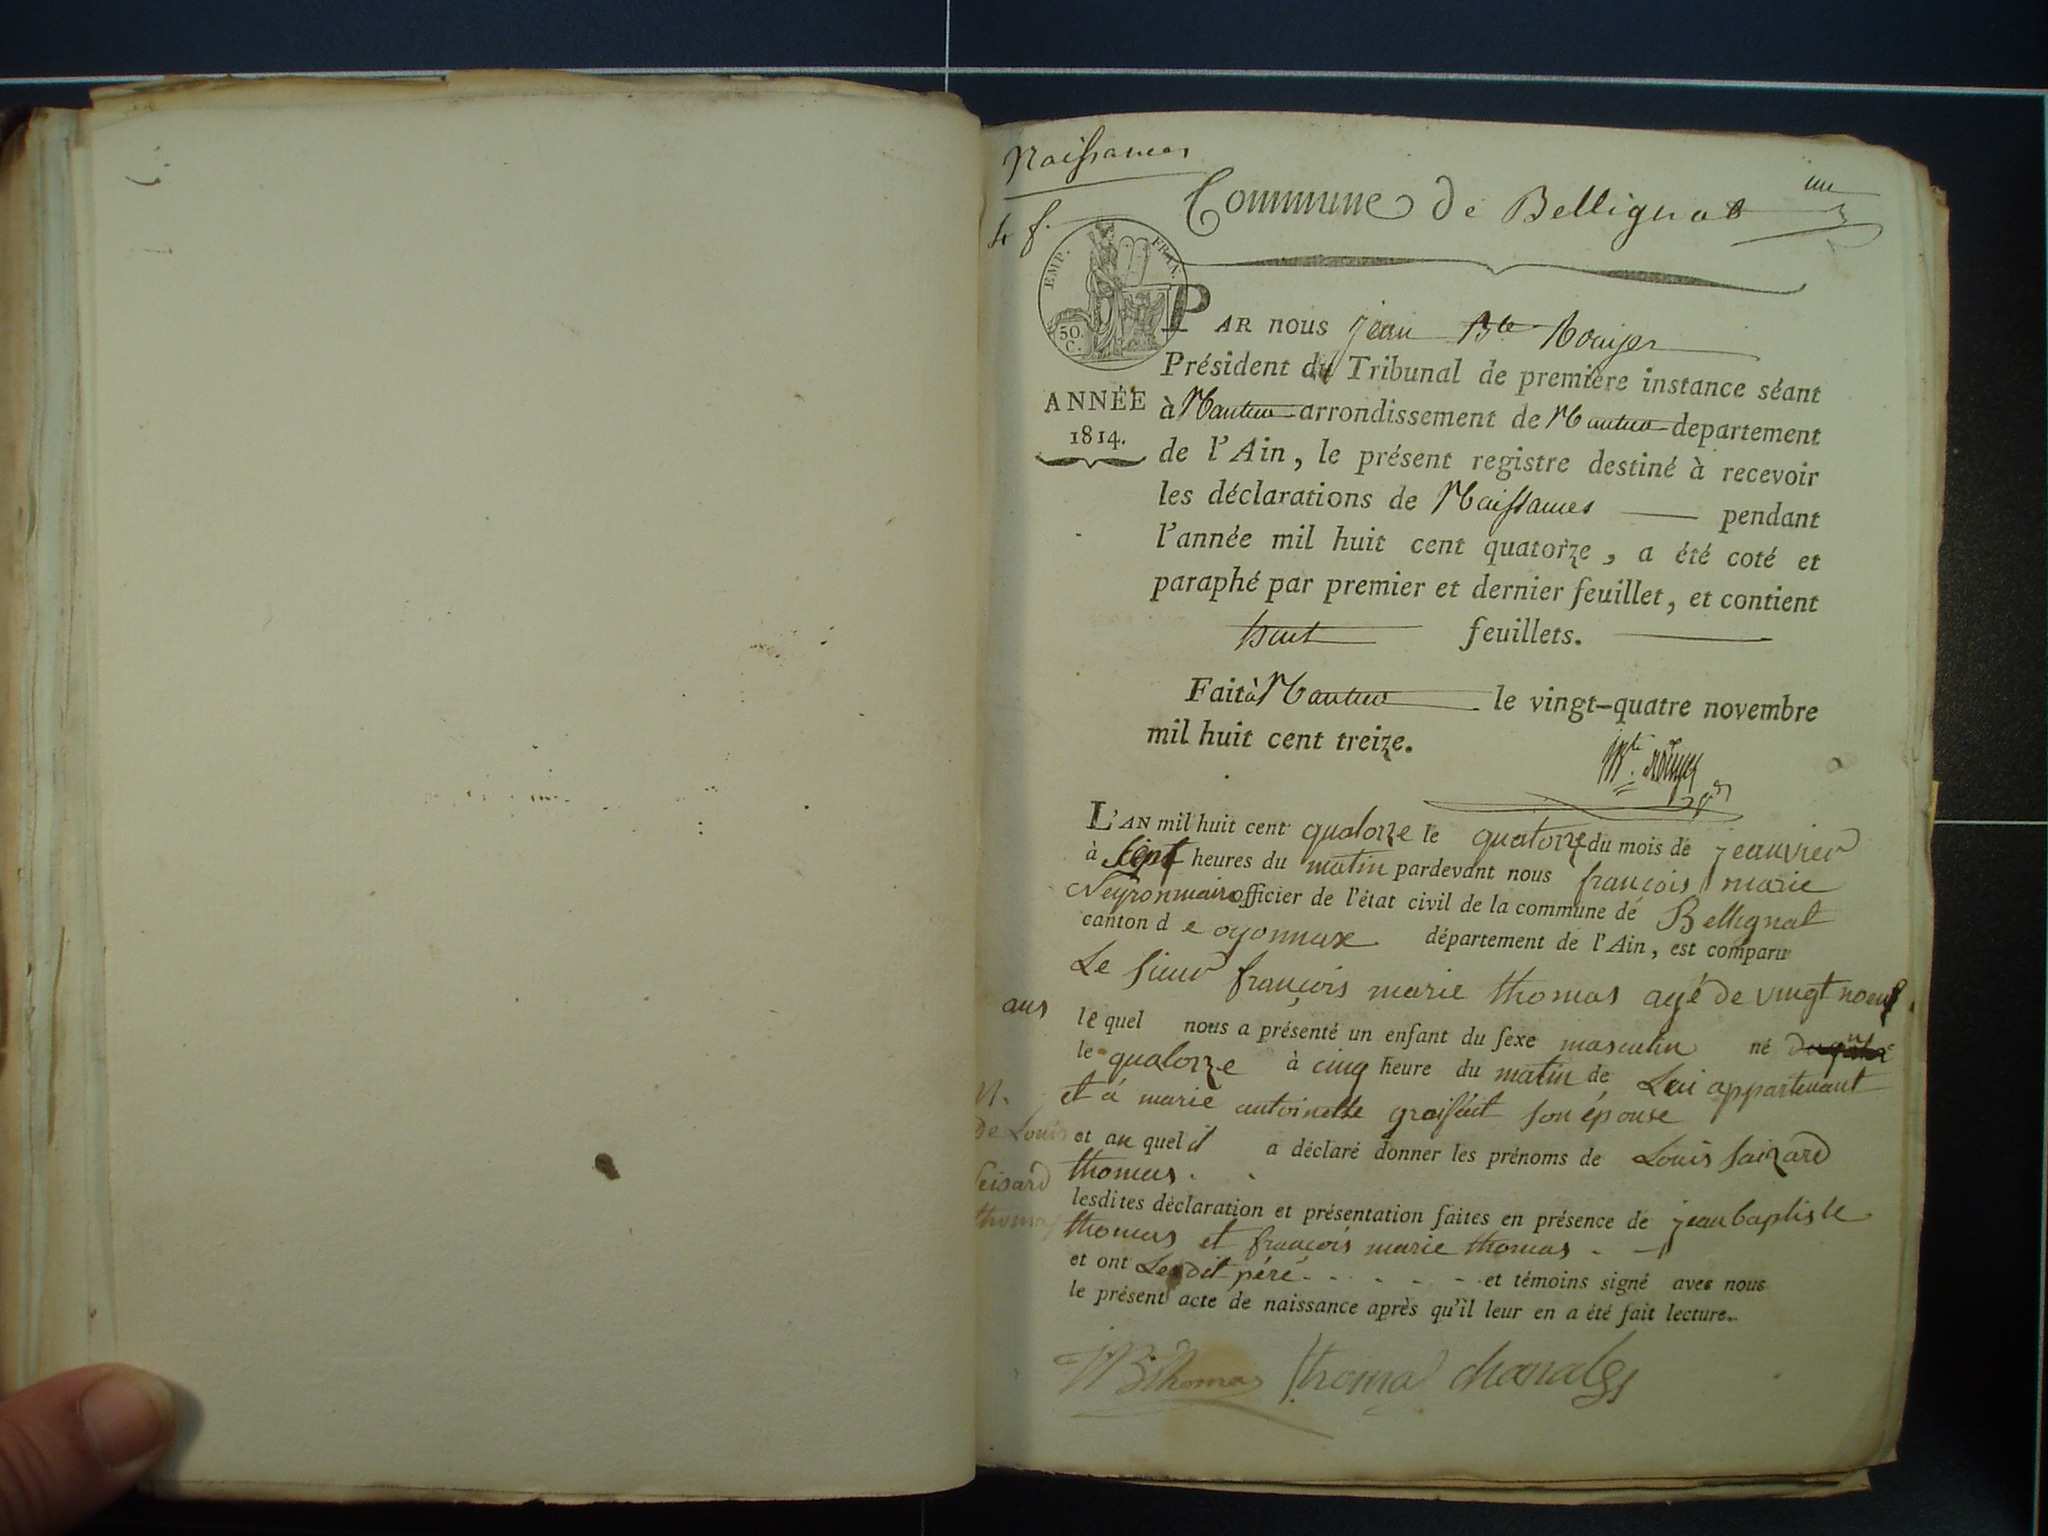 Naissances
4 f.
Commune de Bellignat
EMP. FRA.
50. C.
PAR nous jean Bte
Président du Tribunal de première instance séant
à Nantua arrondissement de Nantua departement
ANNÉE
1814.
de l'Ain, le présent registre destiné à recevoir
les déclarations de Naissances pendant
l'année mil huit cent quatorze, a été coté et
paraphé par premier et dernier feuillet, et contient
huit feuillets.
Fait à Nantua le vingt-quatre novembre
mil huit cent treize.
L'AN mil huit cent quatorze le quatorze du mois de jeanvier
à sept heures du matin pardevant nous françois marie
Neyron maire officier de l'état civil de la commune de Bellignat
canton d e oyonnax département de l'Ain, est comparu
Le sieur françois marie thomas agé de vingt noeuf
ans
le quel nous a présenté un enfant du sexe masculin né
le quatorze à cinq heure du matin de Lui appartenant
et à marie antoinette son épouse
N.
De Louis
seisard
thomas
et au quel il a déclaré donner les prénoms de Louis saizard
thomas.
lesdites déclaration et présentation faites en présence de jean baptiste
thomas et françois marie thomas
et ont Lesdit péré et témoins signé avec nous
le présent acte de naissance après qu'il leur en a été fait lecture.
JB thomas thomas